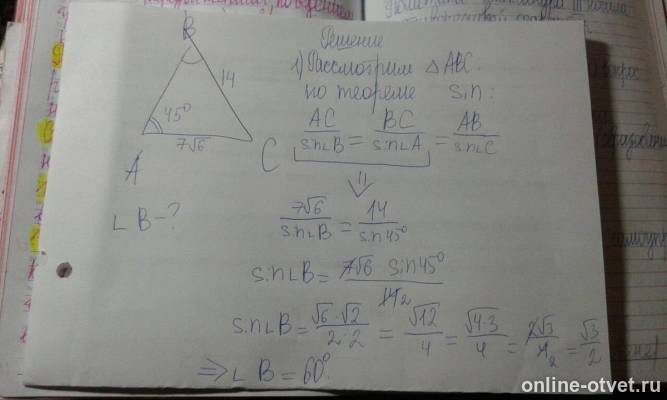 Решение
1) Рассмотрим △ABC.
по теореме sin:
AC/sin∠B = BC/sin∠A = AB/sin∠C
B
14
45°
7√6
A
C
∠B-?
7√6/sin∠B = 14/sin45°
sin∠B = 7√6 sin45°/14 2
sin∠B = √6·√2/2·2 = √12/4 = √4·3/4 = 2√3/4 2 = √3/2
⇒ ∠B = 60°.
online-otvet.ru